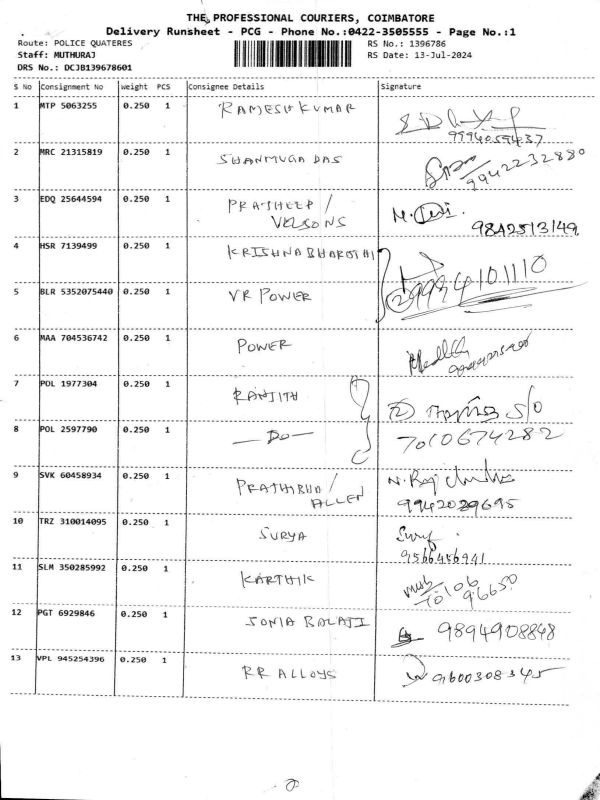 THE PROFESSIONAL COURIERS, COIMBATORE
Delivery Runsheet - PCG - Phone No.:0422-3505555 - Page No.:1
Route: POLICE QUATERES RS No.: 1396786
Staff: MUTHURAJ RS Date: 13-Jul-2024
DRS No.: DCJB139678601
S No Consignment No Weight PCS Consignee Details Signature
1 MTP 5063255 0.250 1 RAMESH KUMAR
9994059437
2 MRC 21315819 0.250 1 SHANMUGA DAS
9942232880
3 EDQ 25644594 0.250 1 PRATHEEP /
VELSONS 9842513149
4 HSR 7139499 0.250 1 KRISHNA BHARATHI
5 BLR 5352075440 0.250 1 VR POWER 9994101110
6 MAA 704536742 0.250 1 POWER
7 POL 1977304 0.250 1 RANJITH S/O
8 POL 2597790 0.250 1 — DO — 7010674282
9 SVK 60458934 0.250 1 PRATHIBHA /
ALLEN 9942029695
10 TRZ 310014095 0.250 1 SURYA
9566456941
11 SLM 350285992 0.250 1 KARTHIK 70106
96650
12 PGT 6929846 0.250 1 SONIA BALAJI 9894908848
13 VPL 945254396 0.250 1 RR ALLOYS 9600308345